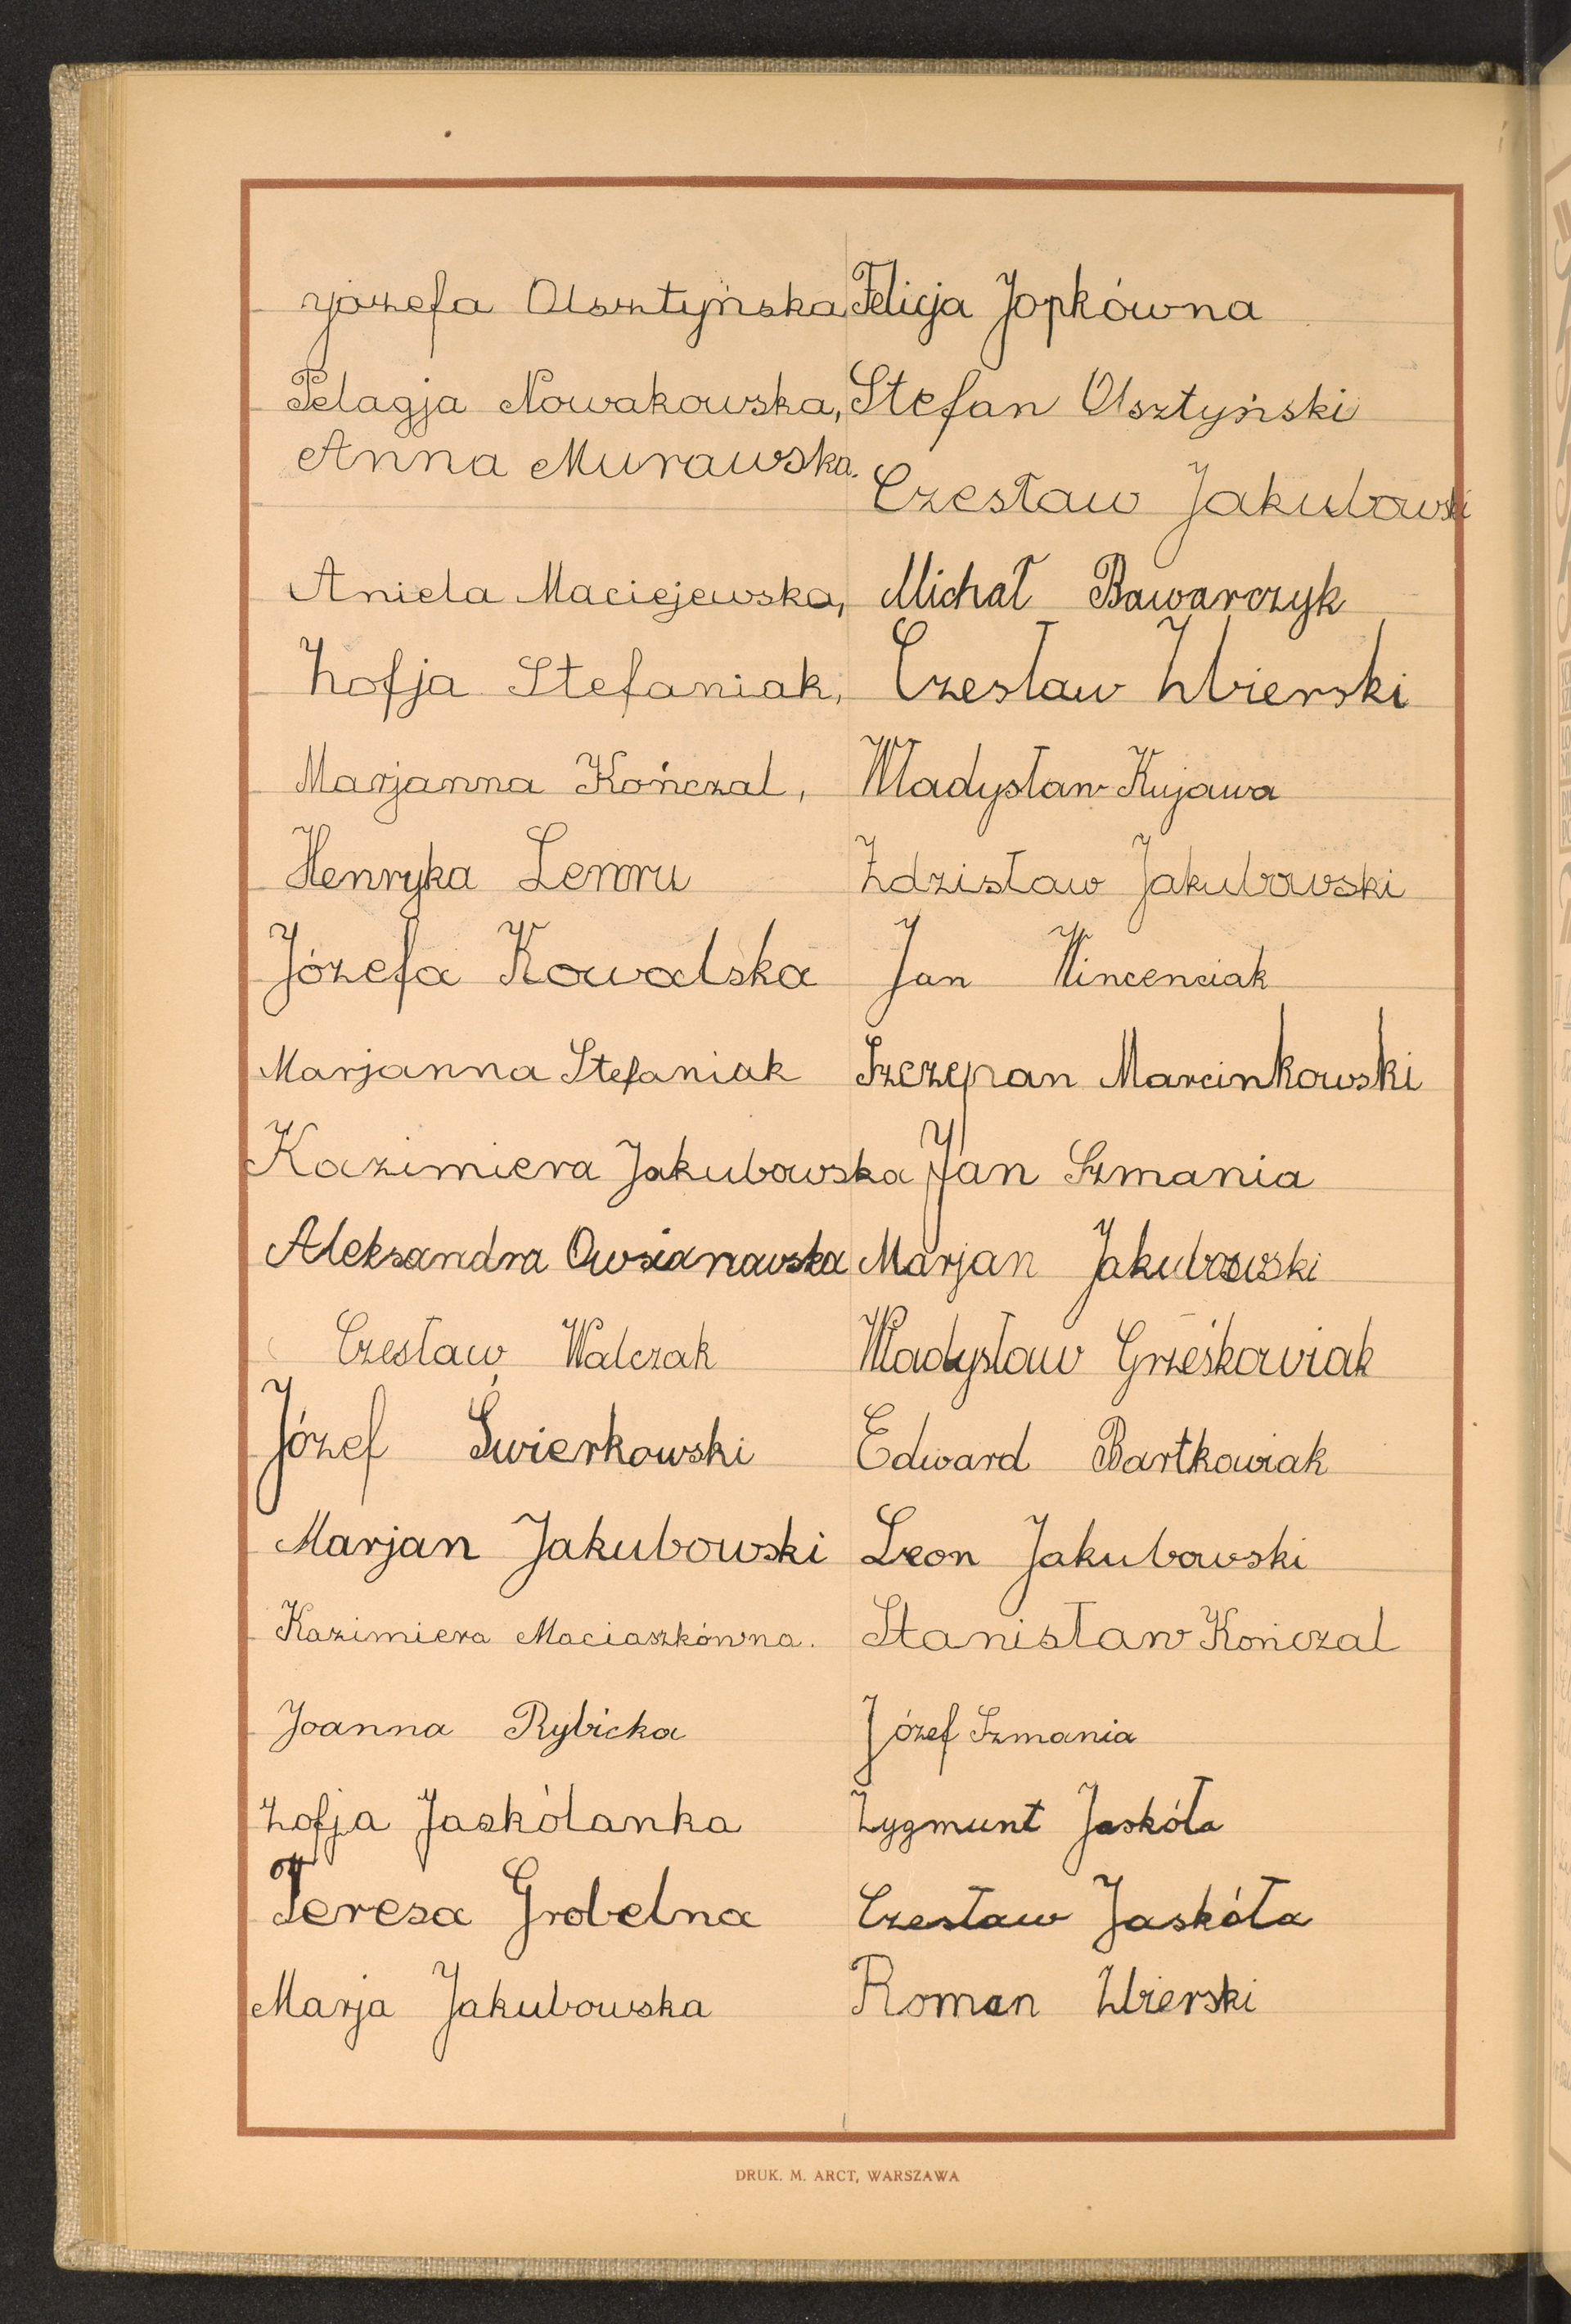 Józefa Olsztyńska Felicja Jopkówna
Pelagja Nowakowska, Stefan Olsztyński
Anna Murawska.
Czesław Jakubowski
Aniela Maciejewska, Michał Bawarczyk
Zofja Stefaniak, Czesław Zbierski
Marjanna Kończal, Władysław Kujawa
Henryka Zdzisław Jakubowski
Józefa Kowalska Jan Wincenciak
Marjanna Stefaniak Szczepan Marcinkowski
Kazimiera Jakubowska Jan Szmania
Aleksandra Owsianowska Marjan Jakubowski
Czesław Walczak Władysław Grześkowiak
Józef Świerkowski Edward Bartkowiak
Marjan Jakubowski Leon Jakubowski
Kazimiera Maciaszkówna. Stanisław Kończal
Joanna Rybicka Józef Szmania
Zofja Jaskólanka Zygmunt Jaskóła
Teresa Grobelna Czesław Jaskóła
Marja Jakubowska Roman Zbierski
DRUK. M. ARCT, WARSZAWA